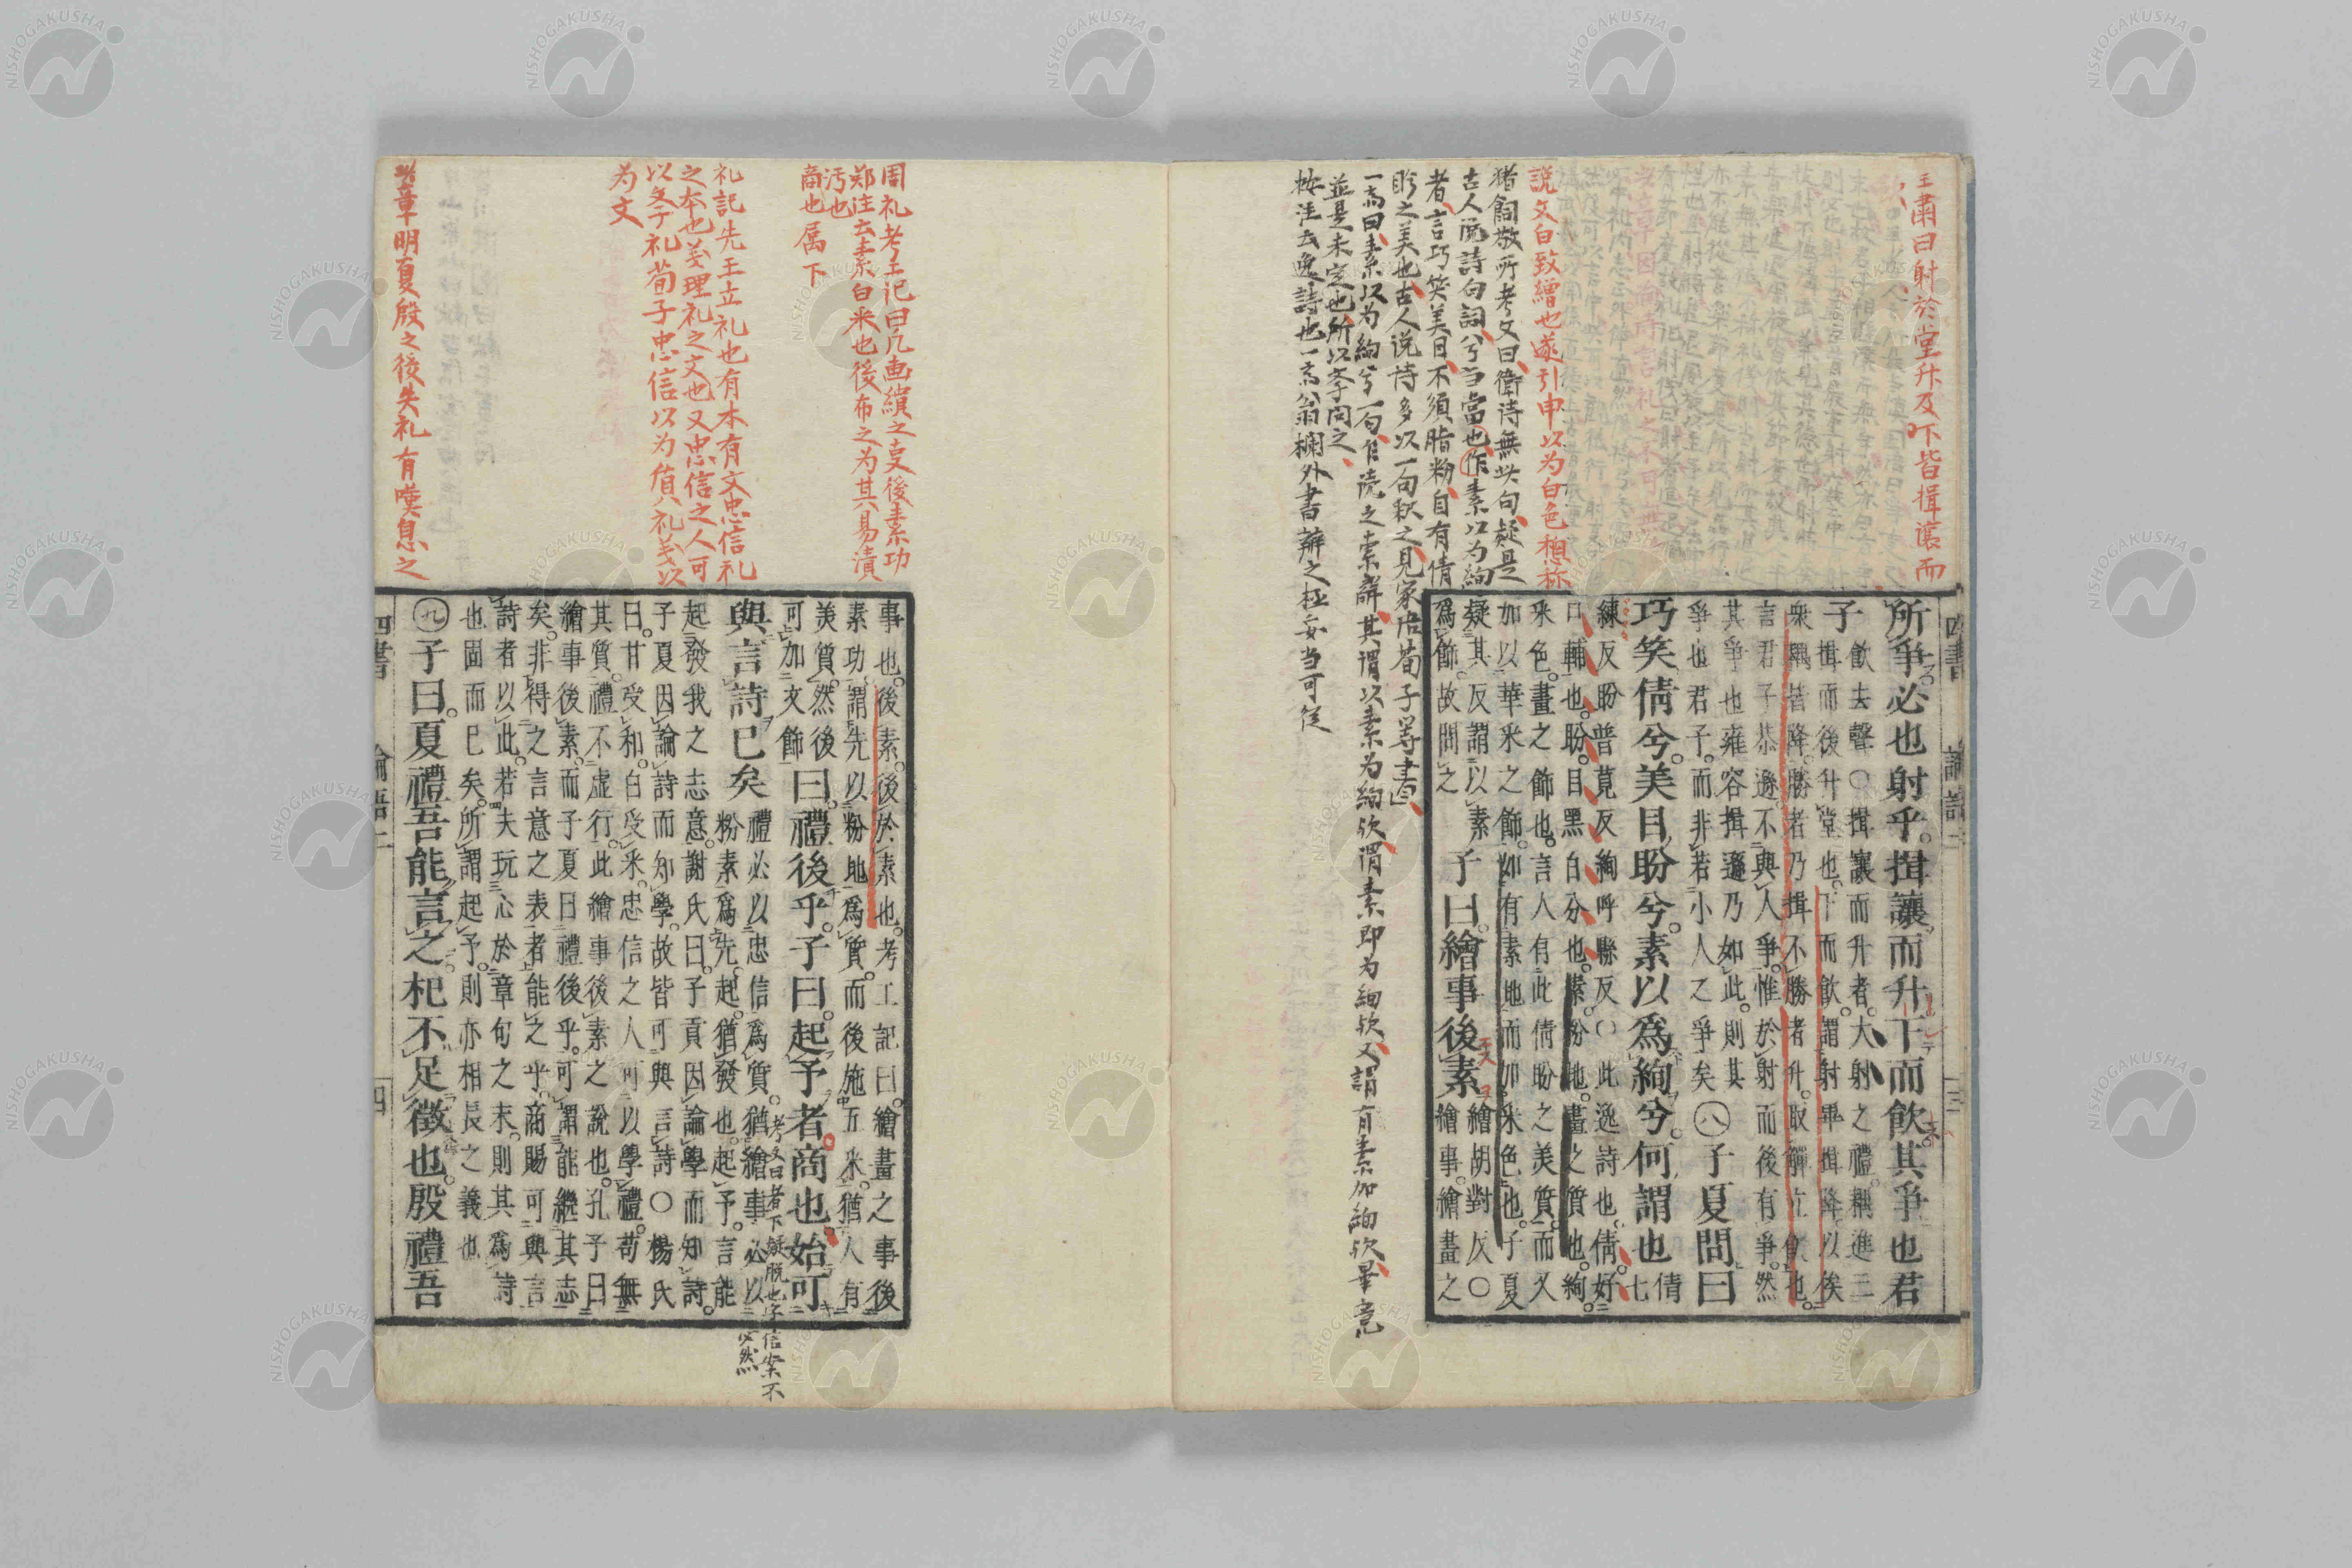 王肅曰射於堂升及下皆揖讓而
説文白致繒也遂引申以为白色想称
猪飼敬所考文曰衛诗無此句疑是
古人説詩句詞兮当當也作素以为絢
者言巧笑美目不須脂粉自有倩
盼之美也古人说诗多以一句釈之見家語荀子等書
一斎曰素以为絢兮一句
並是未定也所以字问之
按注云逸詩也一斎翁欄外書辨之极妥当可從
四書
論語二
三
所爭必也射乎揖讓而升下而飲其爭也君
子
飲去聲○揖讓而升者大射之禮耦進三
揖而後升堂也下而飲謂射畢揖降以俟
衆耦皆降勝者乃揖不勝者升取觶立飲也
言君子恭遜不與人爭惟於射而後有爭然
其爭也雍容揖遜乃如此則其
爭也君子而非若小人之爭矣
㊇子夏問曰
巧笑倩兮美目盼兮素以爲絢兮何謂也
倩七
練反盼普莧反絢呼縣反○此逸詩也倩好
口輔也盼目黑白分也素粉地畫之質也絢
采色畫之飾也言人有此倩盼之美質而又
加以華采之飾如有素地而加采色也子夏
疑其反謂以素
爲飾故問之
子曰繪事後素
繪胡對反○
繪事繪畫之
周礼考工记曰凡画繢之事後素功
郑注云素白采也後布之为其易漬
汚也
商也属下
礼記先王立礼也有本有文忠信礼
之本也义理礼之文也又忠信之人可
以学礼荀子忠信以为質礼义以
为文
此章明夏殷之後失礼有嘆息之
事也後素後於素也考工記曰繪畫之事後
素功謂先以粉地爲質而後施五采猶人有
美質然後
可加文飾
曰禮後乎子曰起予者商也始可
與言詩已矣
禮必以忠信爲質猶繪事必以
粉素爲先起猶發也起予言能
起發我之志意謝氏曰子貢因論學而知詩
子夏因論詩而知學故皆可與言詩○楊氏
曰甘受和白受采忠信之人可以學禮苟無
其質禮不虛行此繪事後素之說也孔子曰
繪事後素而子夏曰禮後乎可謂能繼其志
矣非得之言意之表者能之乎商賜可與言
詩者以此若夫玩心於章句之末則其爲詩
也固而已矣所謂起予則亦相長之義也
考文曰者下疑脱也字信案不
必然
㊈子曰夏禮吾能言之杞不足徵也殷禮吾
四書
論語二
四